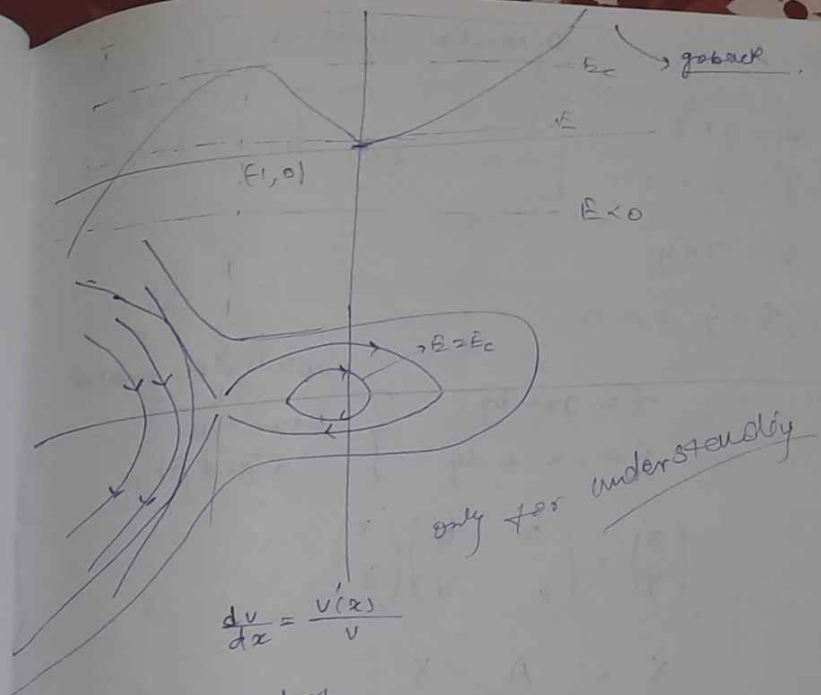 Ec
goback.
E
(-1,0)
E<0
E=Ec
only for understanding
dv/dx = V'(x)/v